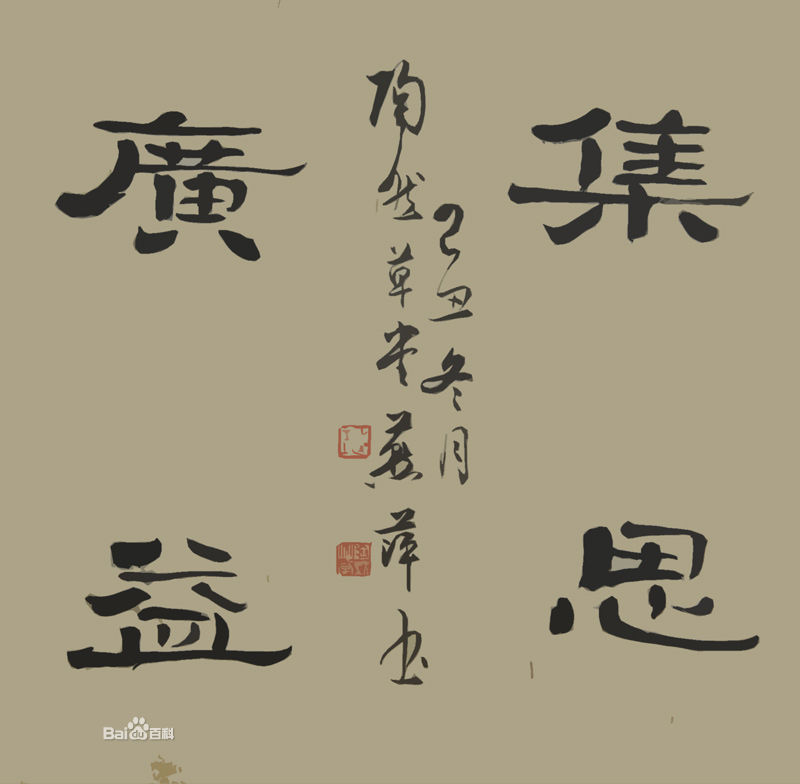 集思
廣益
己丑冬月
陶然草堂燕萍书
Baidu百科